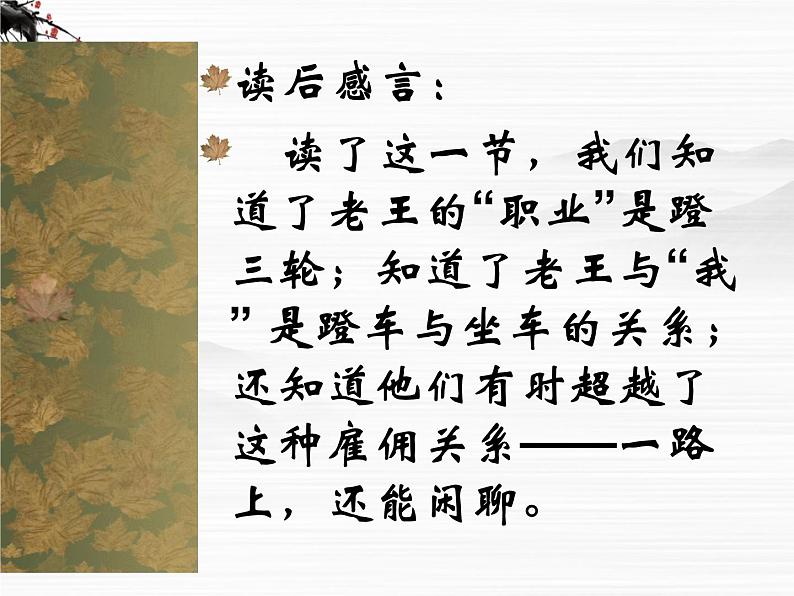 读后感言：
读了这一节，我们知
道了老王的“职业”是蹬
三轮；知道了老王与“我
”是蹬车与坐车的关系；
还知道他们有时超越了
这种雇佣关系——一路
上，还能闲聊。